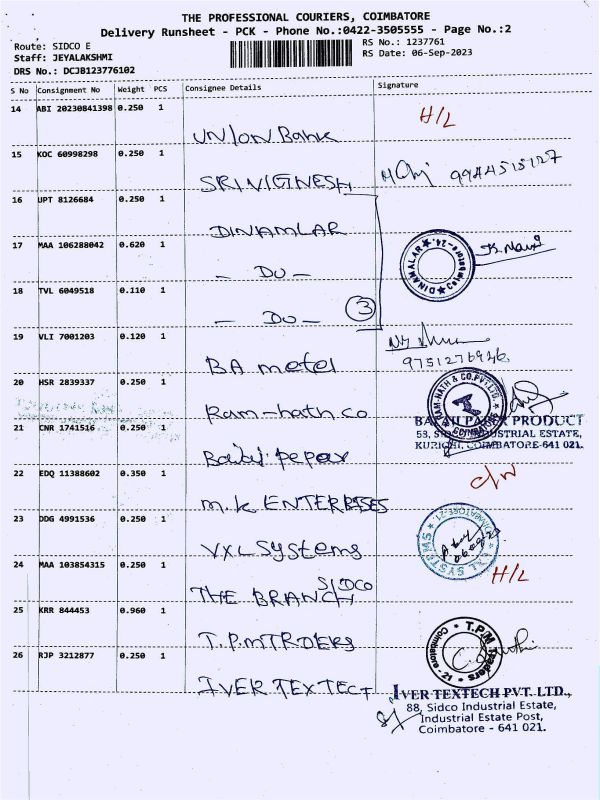 THE PROFESSIONAL COURIERS, COIMBATORE
Delivery Runsheet - PCK - Phone No.:0422-3505555 - Page No.:2
Route: SIDCO E
RS No.: 1237761
Staff: JEYALAKSHMI
RS Date: 06-Sep-2023
DRS No.: DCJB123776102
S No Consignment No Weight PCS Consignee Details Signature
14 ABI 20230841398 0.250 1
H/L
UNION Bank
15 KOC 60998298 0.250 1
9944515127
SRIVIGINESH
16 UPT 8126684 0.250 1
DINAMLAR
17 MAA 106288042 0.620 1
DINAMALAR
- Do -
18 TVL 6049518 0.110 1
3
- Do -
19 VLI 7001203 0.120 1
BA metel
9751276946
20 HSR 2839337 0.250 1
RAM-NATH & CO.PVT.LTD.
Ram-hath co
21 CNR 1741516 0.250 1
PRODUCT
53, INDUSTRIAL ESTATE,
KURICHI, COIMBATORE-641 021.
Balaji pepar
22 EDQ 11388602 0.350 1
C/N
M.K ENTERPRISES
23 DDG 4991536 0.250 1
VXL SYSTEMS
VXL Systems
24 MAA 103854315 0.250 1
H/L
SIDCO
THE BRANCH
25 KRR 844453 0.960 1
T.P.M Traders
Coimbatore - 21
T.P.M TRDERS
26 RJP 3212877 0.250 1
IVER TEXTECT
IVER TEXTECH PVT. LTD.,
88, Sidco Industrial Estate,
Industrial Estate Post,
Coimbatore - 641 021.